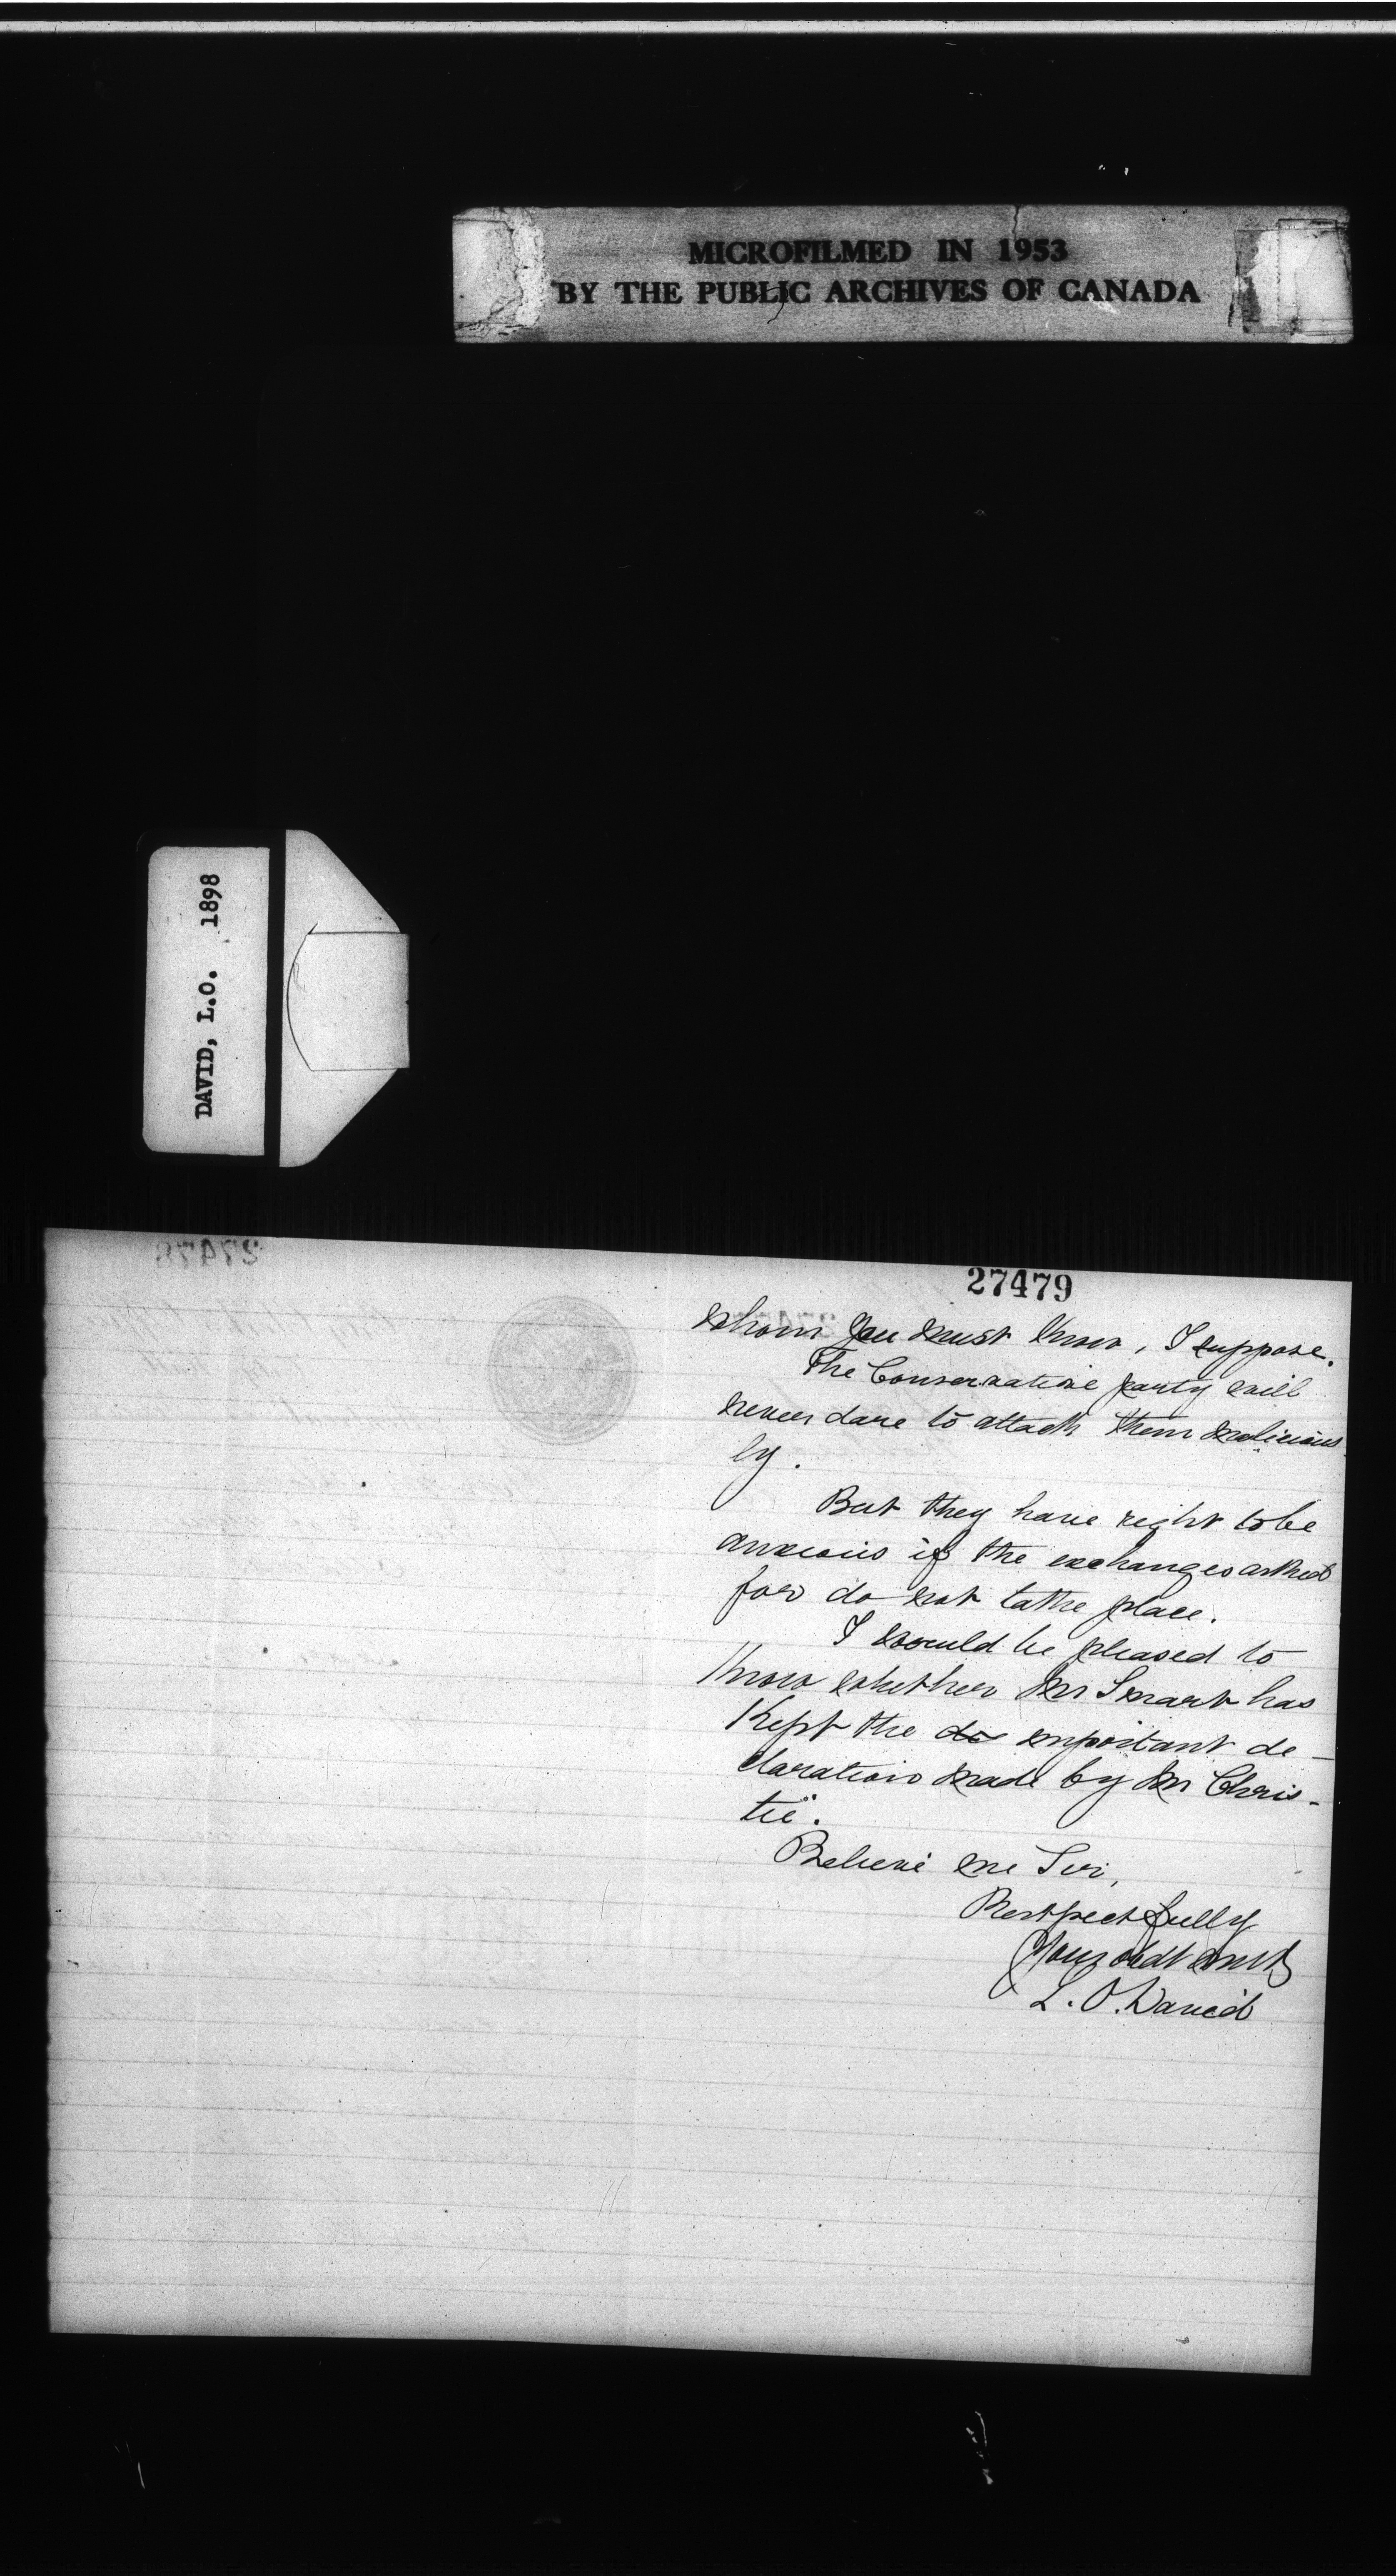 MICROFILMED IN 1953
BY THE PUBLIC ARCHIVES OF CANADA
DAVID, L.O. 1898
27478
27479
whom you must know, I suppose.
The Conservative party will
never dare to attack them malicious
ly.
But they have right to be
anxious if the exchanges asked
for do not take place.
I would be pleased to
know whether Mr Smart has
kept the de important de-
claration made by Mr Chris-
tie.
Believe me Sir,
Respectfully
Your obdt servt
L. O. David